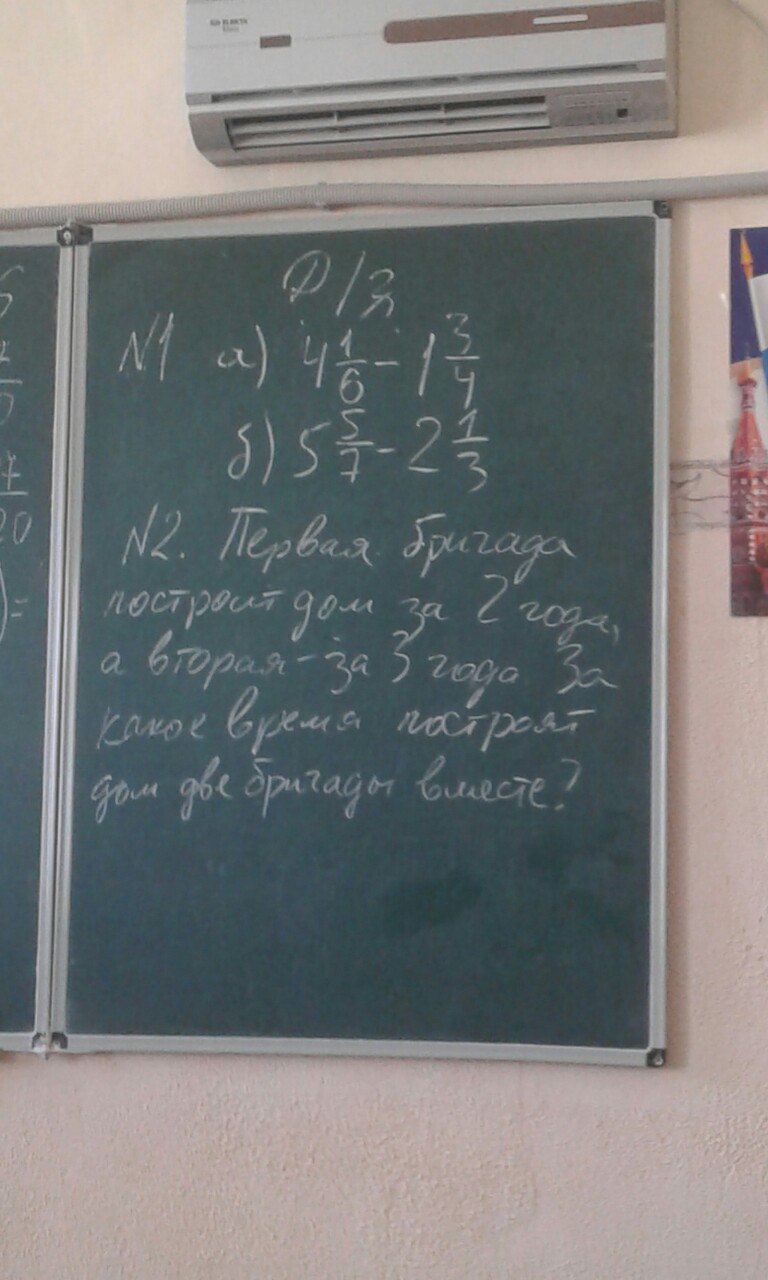 Д/з
N1 а) 4 1/6 - 1 3/4
б) 5 5/7 - 2 1/3
N2. Первая бригада
построит дом за 2 года,
а вторая - за 3 года За
какое время построят
дом две бригады вместе?